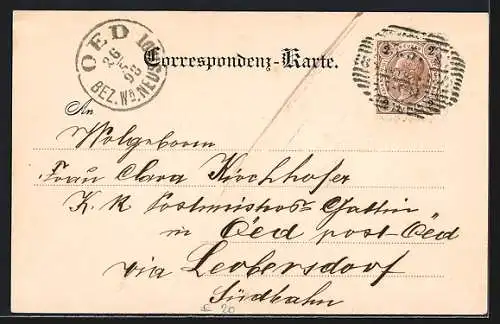 OED
26
98
BEZ. WR. NEUST
Correspondenz-Karte.
2 2
An
Wolgeborn
Frau Clara Kirchhofer
K. K Postmeisters Gattin
in Oed post Oed
via Leobersdorf
Südbahn
£ 20